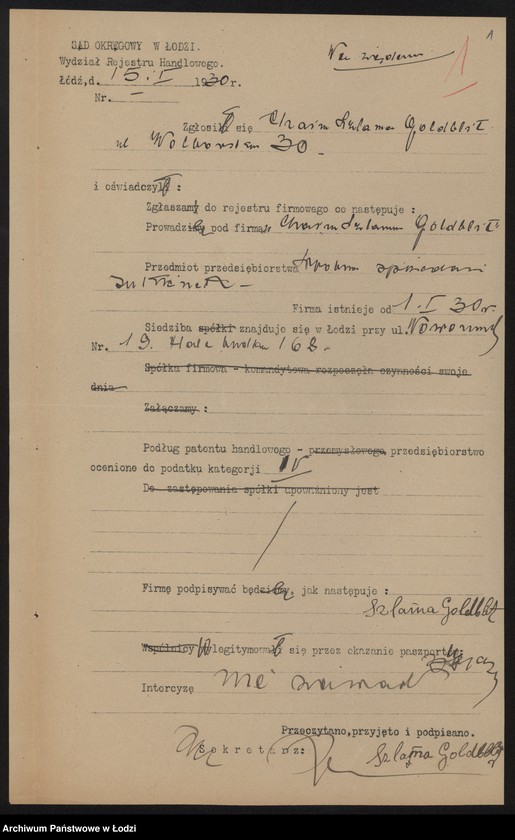 1
SĄD OKRĘGOWY W ŁODZI.
Wydział Rejestru Handlowego.
Łódź, d. 15. I 1930 r.
Nr. —
1
Zgłosił się Chaim Szlama Goldblit
ul Wolborska 30 —
i oświadczył :
Zgłaszam do rejestru firmowego co następuje :
Prowadzi pod firmą Chaim Szlama Goldblit
Przedmiot przedsiębiorstwa sprzedaż
Firma istnieje od 1. I 30 r.
Siedziba spółki znajduje się w Łodzi przy ul.
Nr. 19.
Spółka firmowa - komandytowa rozpoczęła czynności swoje
dnia
Załączamy :
Podług patentu handlowego - przemysłowego przedsiębiorstwo
ocenione do podatku kategorji IV
Do zastępowania spółki upoważniony jest
Firmę podpisywać będzie, jak następuje :
Szlama Goldblit
Wspólnicy Wylegitymował się przez okazanie paszportu
Intercyzę nie zawierał
Przeczytano, przyjęto i podpisano.
Sekretarz:
Szlama Goldblit
Archiwum Państwowe w Łodzi